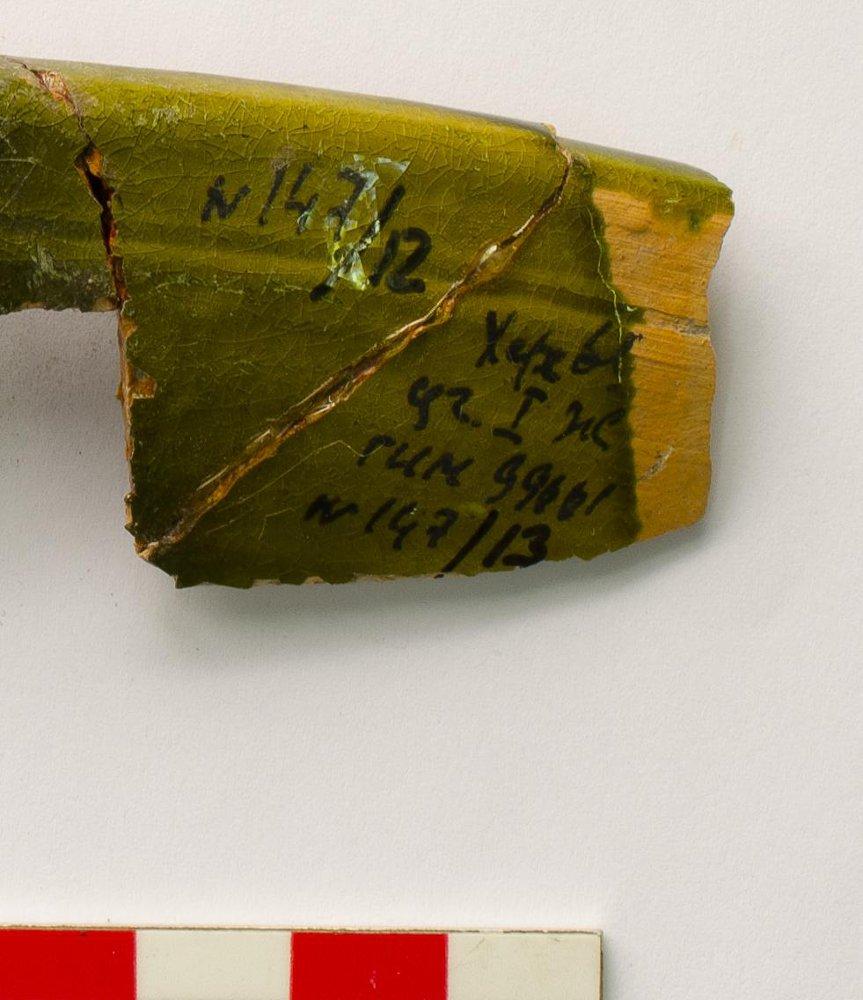 N 147/12
Херж 61
уг. I не
ГИМ 99661
N 147/13